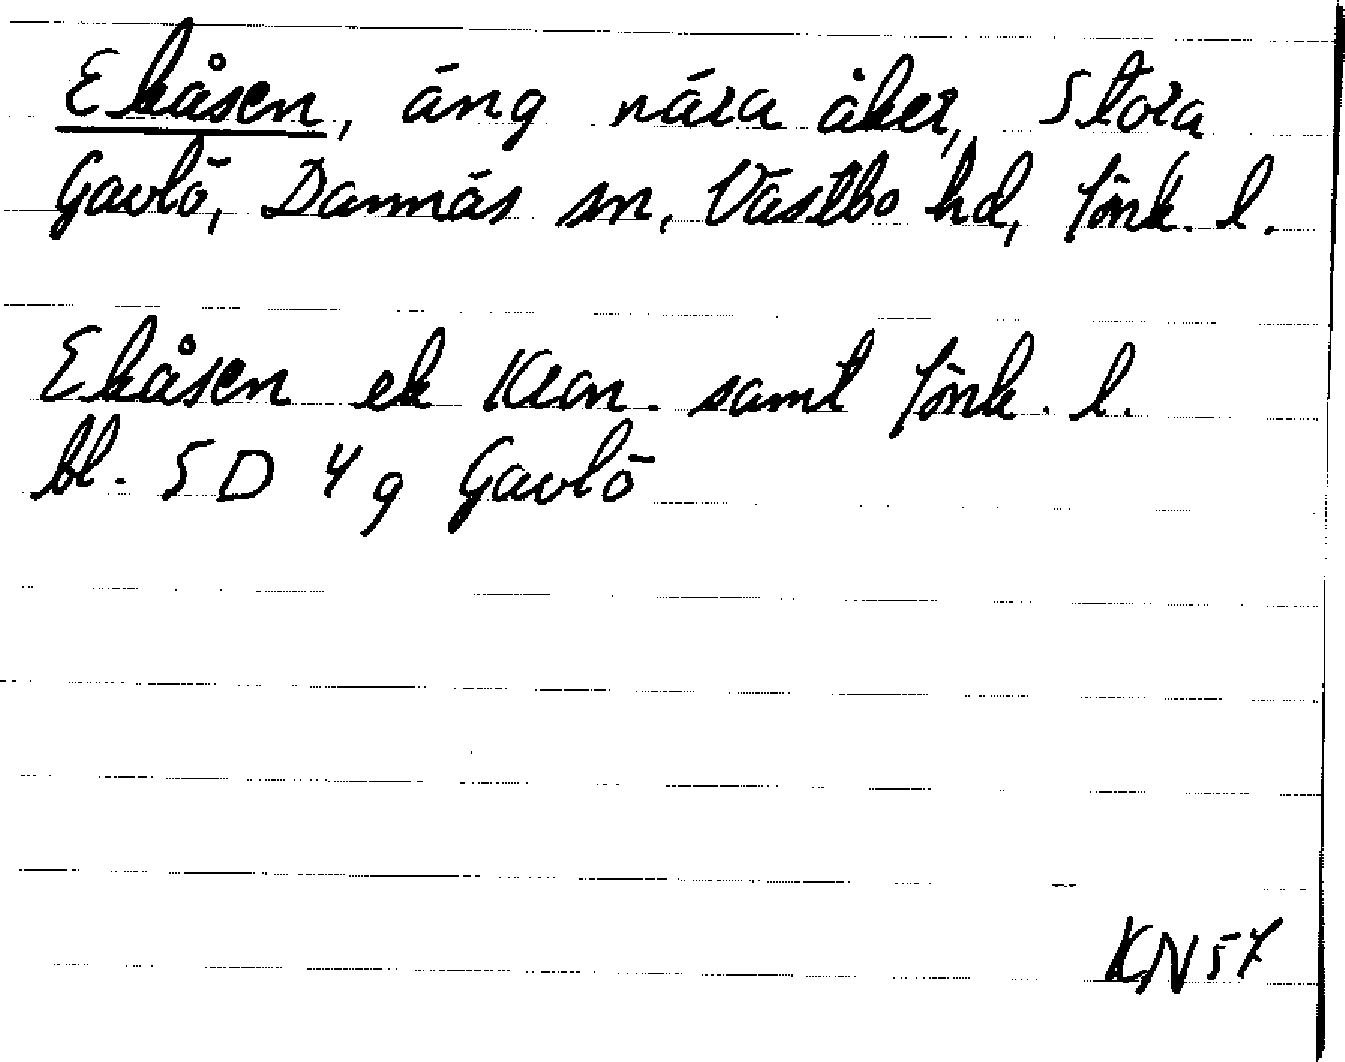 Ekåsen, äng nära åker, Stora
Gavlö, Dannäs sn, Västbo hd, Jönk. l.
Ekåsen ek Kron. samt Jönk. l.
bl. 5D 4g Gavlö
KN57